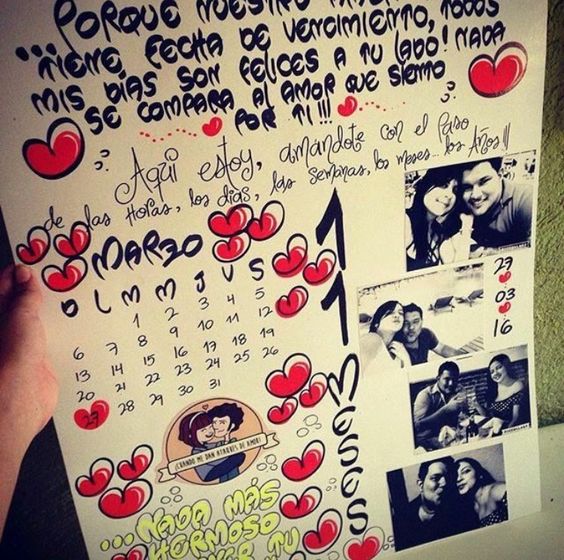 PORQUE NUESTRO
...TIENE FECHA DE VENCIMIENTO, TODOS
MIS DÍAS SON FELICES A TU LADO! NADA
SE COMPARA AL AMOR QUE SIENTO
POR TI!!!
Aqui estoy, amándote con el paso
de las horas, los días, las semanas, los meses... los Años!!
MARZO
D L M M J V S
1 2 3 4 5
6 7 8 9 10 11 12
13 14 15 16 17 18 19
20 21 22 23 24 25 26
27 28 29 30 31
11 Meses
27
03
16
¡CUANDO ME DAN ATAQUES DE AMOR!
...NADA MÁS
HERMOSO
TU